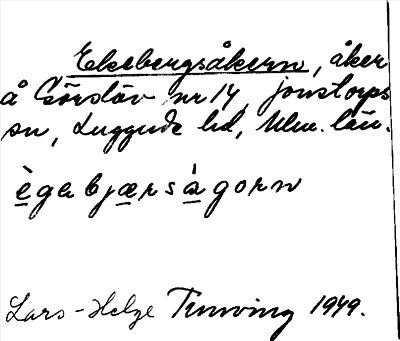 Ekebergsåkern, åker
å Görslöv nr 14, Jonstorps
sn, Luggude hd, Mlm. län.
ègabjærsàgorn
Lars-Helge Tunving 1949.